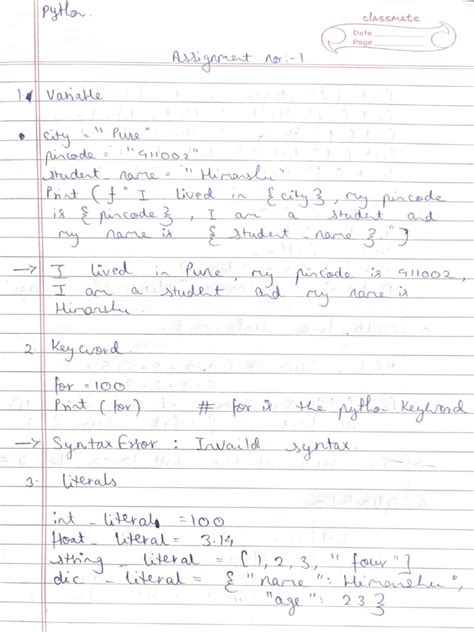 Python
classmate
Date
Page
Assignment no:-1
1. Variable
city = "Pune"
pincode = "411002"
student_name = "Himanshu"
Print (f" I lived in {city}, my pincode
is {pincode}, I am a student and
my name is {student_name}."]
→ I lived in Pune, my pincode is 411002,
I am a student and my name is
Himanshu.
2. Keyword
for = 100
Print (for) # for is the python keyword
→ SyntaxError : Invaild syntax.
3. literals
int_literal = 100
float_literal = 3.14
string_literal = [1, 2, 3, "four"]
dic_literal = { "name": Himanshu",
"age": 23 }